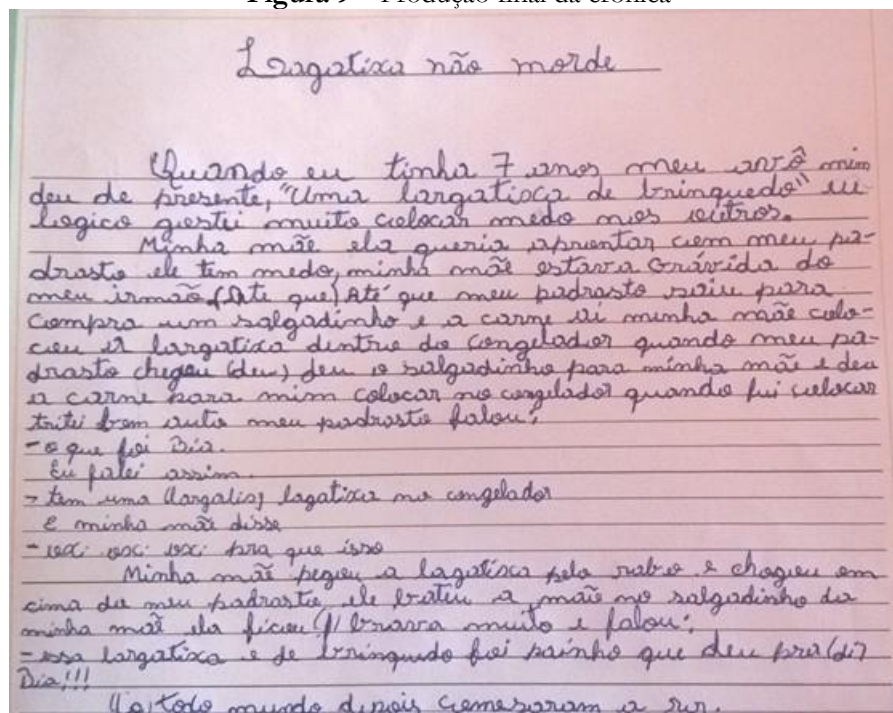 Figura 9 – Produção final da crônica
Lagatixa não morde
Quando eu tinha 7 anos meu avô mim
deu de presente, "Uma largatixa de brinquedo" eu
logico gostei muito colocar medo nos outros.
Minha mãe ela queria aprontar com meu pa-
drasto ele tem medo, minha mãe estava Grávida do
meu irmão (Ate que) Até que meu padrasto saiu para
compra um salgadinho e a carne ai minha mãe colo-
cou a largatixa dentro do congelador quando meu pa-
drasto chegou (deu) deu o salgadinho para minha mãe e deu
a carne para mim colocar no congelador quando fui colocar
tritei bem auto meu padrasto falou:
- o que foi Bia.
Eu falei assim.
- tem uma (largatis) lagatixa no congelador
e minha mãe disse
- oxi oxi oxi pra que isso
Minha mãe pegou a lagatixa pelo rabo e chogou em
cima do meu padrasto, ele bateu a mão no salgadinho da
minha mãe ela ficou brava muito e falou:
- essa largatixa e de brinquedo foi painho que deu pra (di)
Bia!!!
todo mundo depois comesaram a rir.